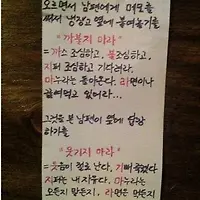 오르면서 남편에게 메모를
써서 냉장고 옆에 붙여놓기를
"까불지 마라"
=까스 조심하고, 불조심하고,
지퍼 조심하고 기다려라.
마누라는 돌아온다. 라면이나
끓여먹고 있어라...
그것을 본 남편이 옆에 답장
하기를
"웃기지 마라"
=웃음이 절로 난다, 기뻐 죽겠다
지퍼는 내 자유다. 마누라는
오든지 말든지, 라면은 먹든지